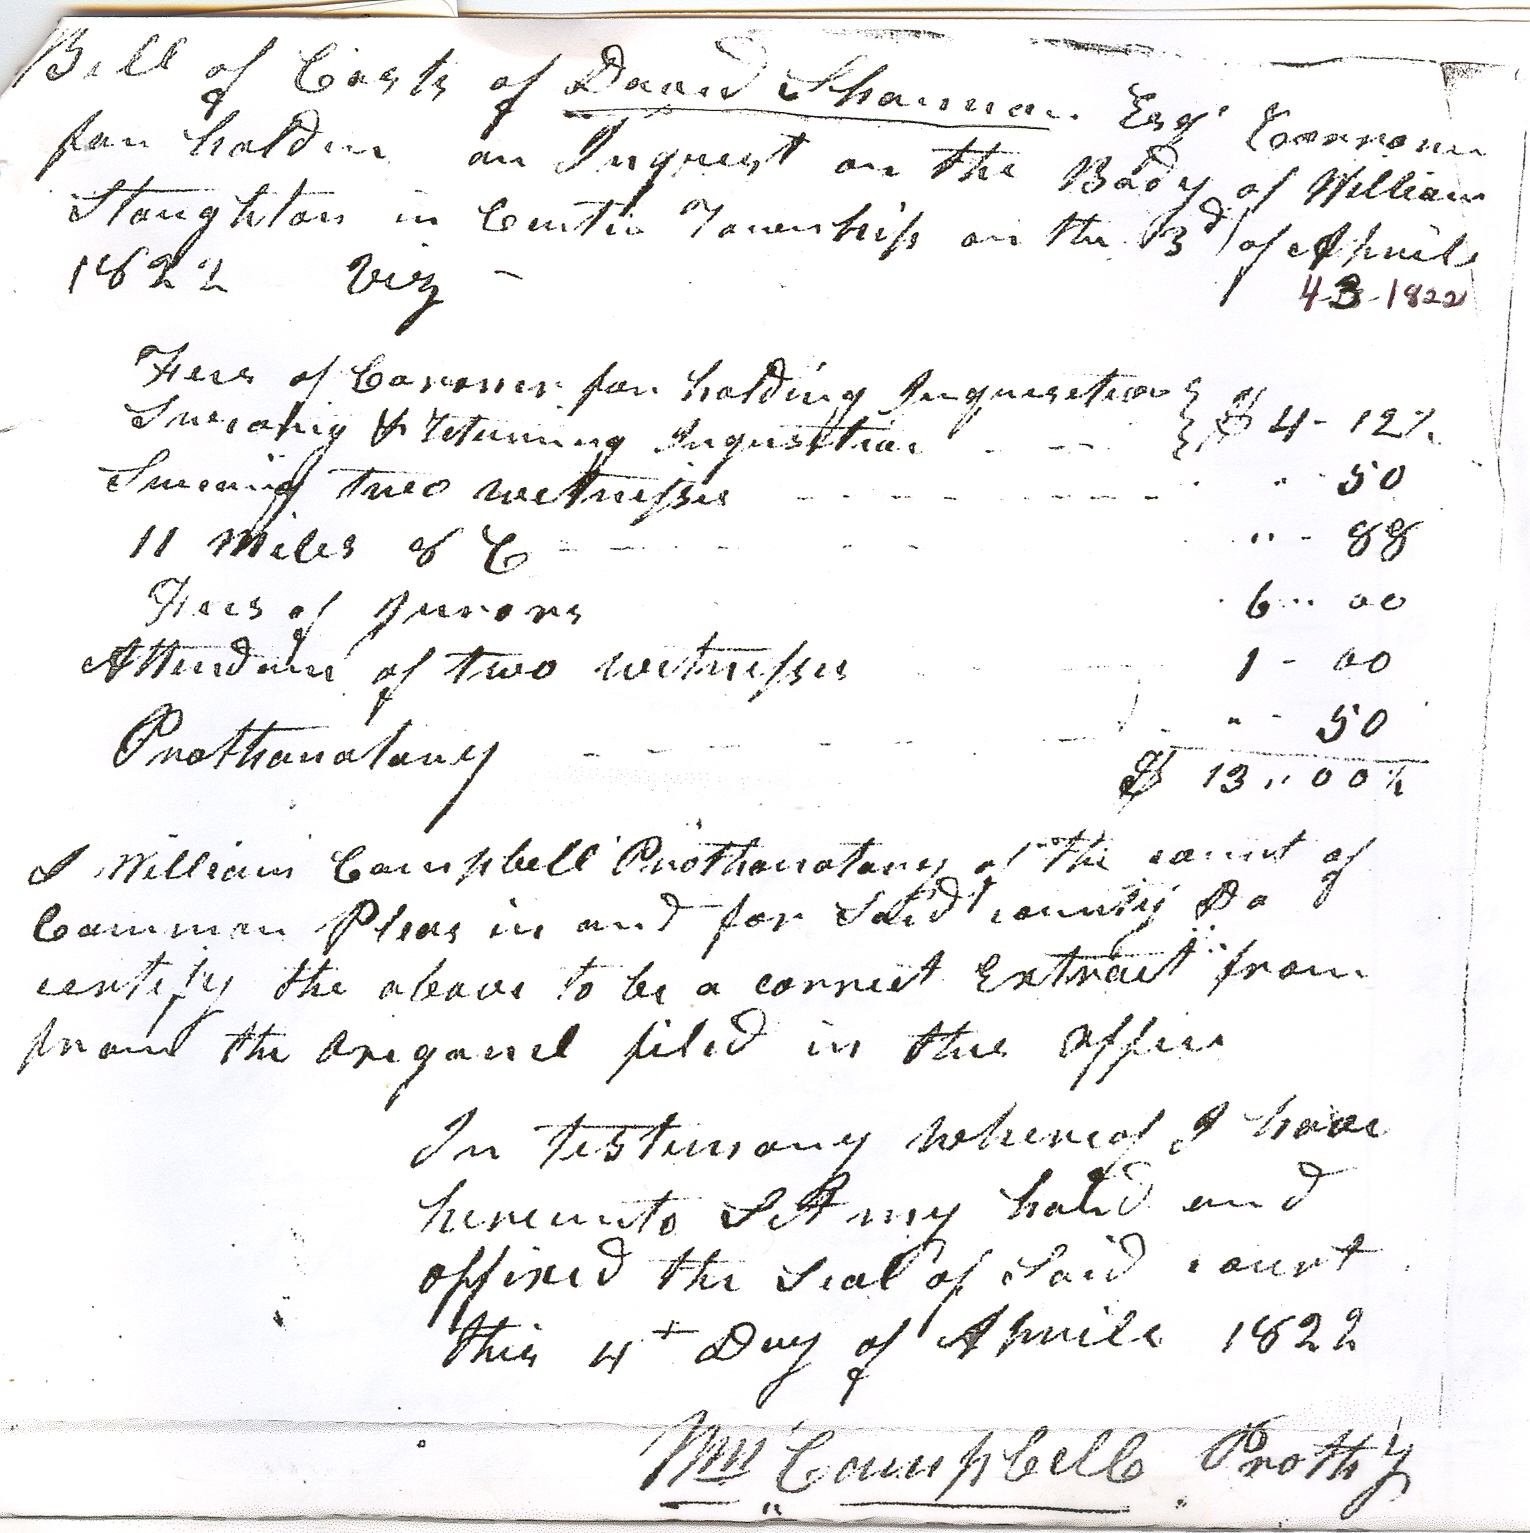 Bill of Costs of David Shannon Esqr Corroner
for holdin an Inquest on the Body of William
Stoughton in Centre Township on the 3d of Aprile
1822 Viz -
4-3-1822
Fees of Coroner for holding Inquisition } $ 4 - 12½
Swearing & returning Inqusition - - - }
Swearing two witnesses - - - - - - - - " 50
11 Miles & C - - - - - - " - 88
Fees of Jurors 6 " 00
Attendance of two witnesses 1 - 00
Prothonotary - - - - - " - 50
$ 13 " 00½
I William Campbell Prothonotary of the court of
Common Pleas in and for Said county Do
certify the above to be a correct Extract from
from the origanel filed in this office
In testimony whereof I have
hereunto Set my hand and
affixed the Seal of Said court
this 4th Day of Aprile 1822
Wm Campbell Proth'y